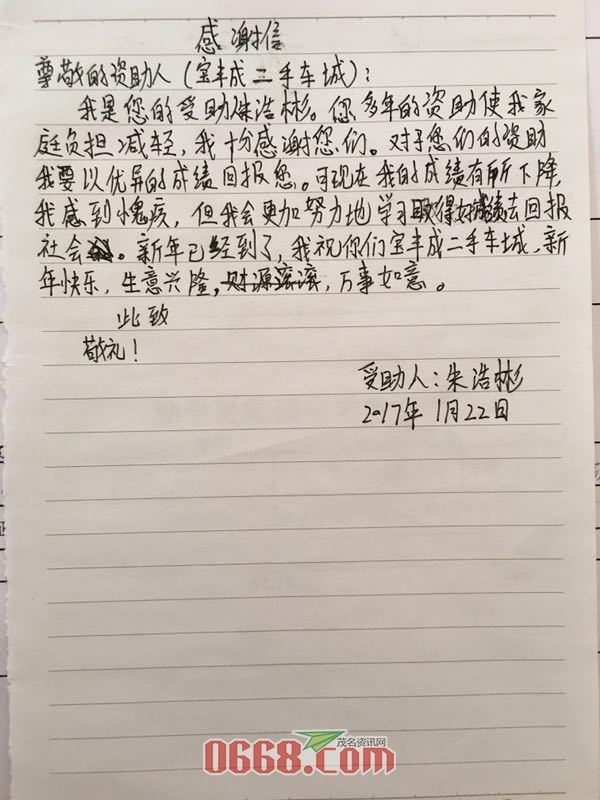 感谢信
尊敬的资助人（宝丰成二手车城）：
我是您的受助朱浩彬。您多年的资助使我家
庭负担减轻，我十分感谢您们。对于您们的资助
我要以优异的成绩回报您。可现在我的成绩有所下降，
我感到愧疚，但我会更加努力地学习取得好成绩去回报
社会。新年已经到了，我祝你们宝丰成二手车城，新
年快乐，生意兴隆，财源滚滚，万事如意。
此致
敬礼！
受助人：朱浩彬
2017年1月22日
茂名资讯网
0668.com